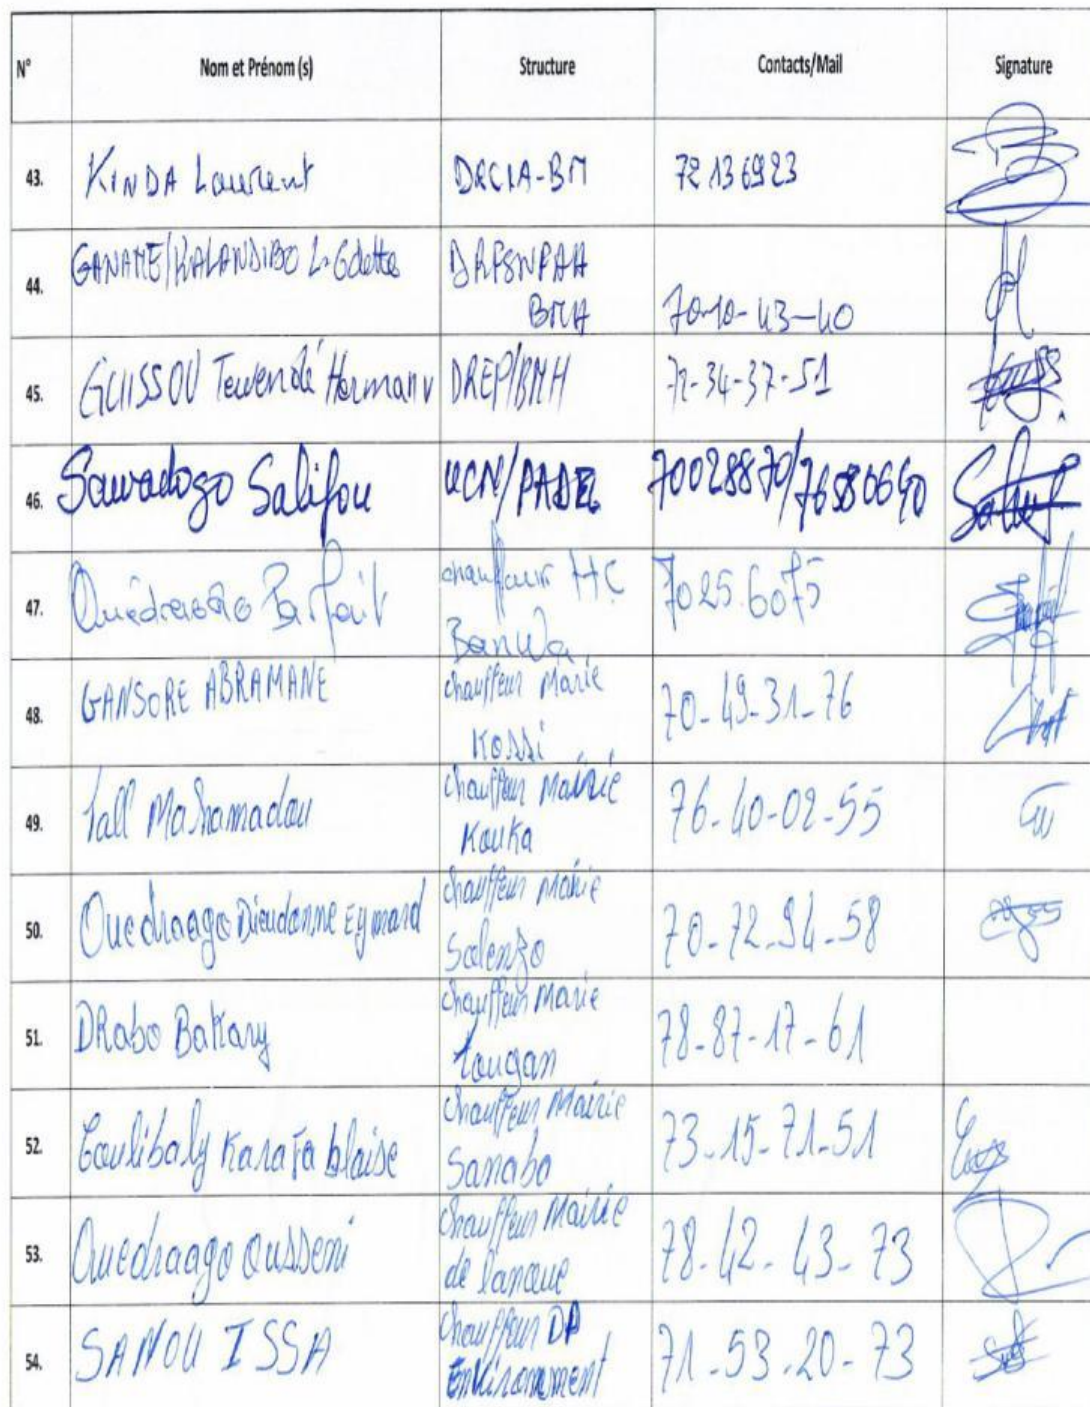 N° Nom et Prénom (s) Structure Contacts/Mail Signature
43. KINDA Laurent DRCIA-BM 72 13 69 23
44. GANAME/KALANDIBO L. Odette DRFSNFAH
BMH 70-10-43-40
45. GUISSOU Tewendé Hermann DREP/BMH 72-34-37-51
46. Sawadogo Salifou UCN/PADEL 70028870/76580640
47. Ouédraogo Parfait chauffeur HC
Banwa 7025.6075
48. GANSORE ABRAMANE chauffeur Marie
Kossi 70-49-31-76
49. Tall Mahamadou chauffeur Mairie
Kouka 76-40-02-55
50. Ouedraogo Dieudonne Eymard chauffeur Mairie
Solenzo 70-72-94-58
51. DRabo Bakary chauffeur Marie
Tougan 78-87-17-61
52. Coulibaly Karafa blaise chauffeur Mairie
Sanaba 73-15-71-51
53. Ouedraogo Ousseni chauffeur Mairie
de 78-42-43-73
54. SANOU ISSA chauffeur DP
Environnement 71-53-20-73